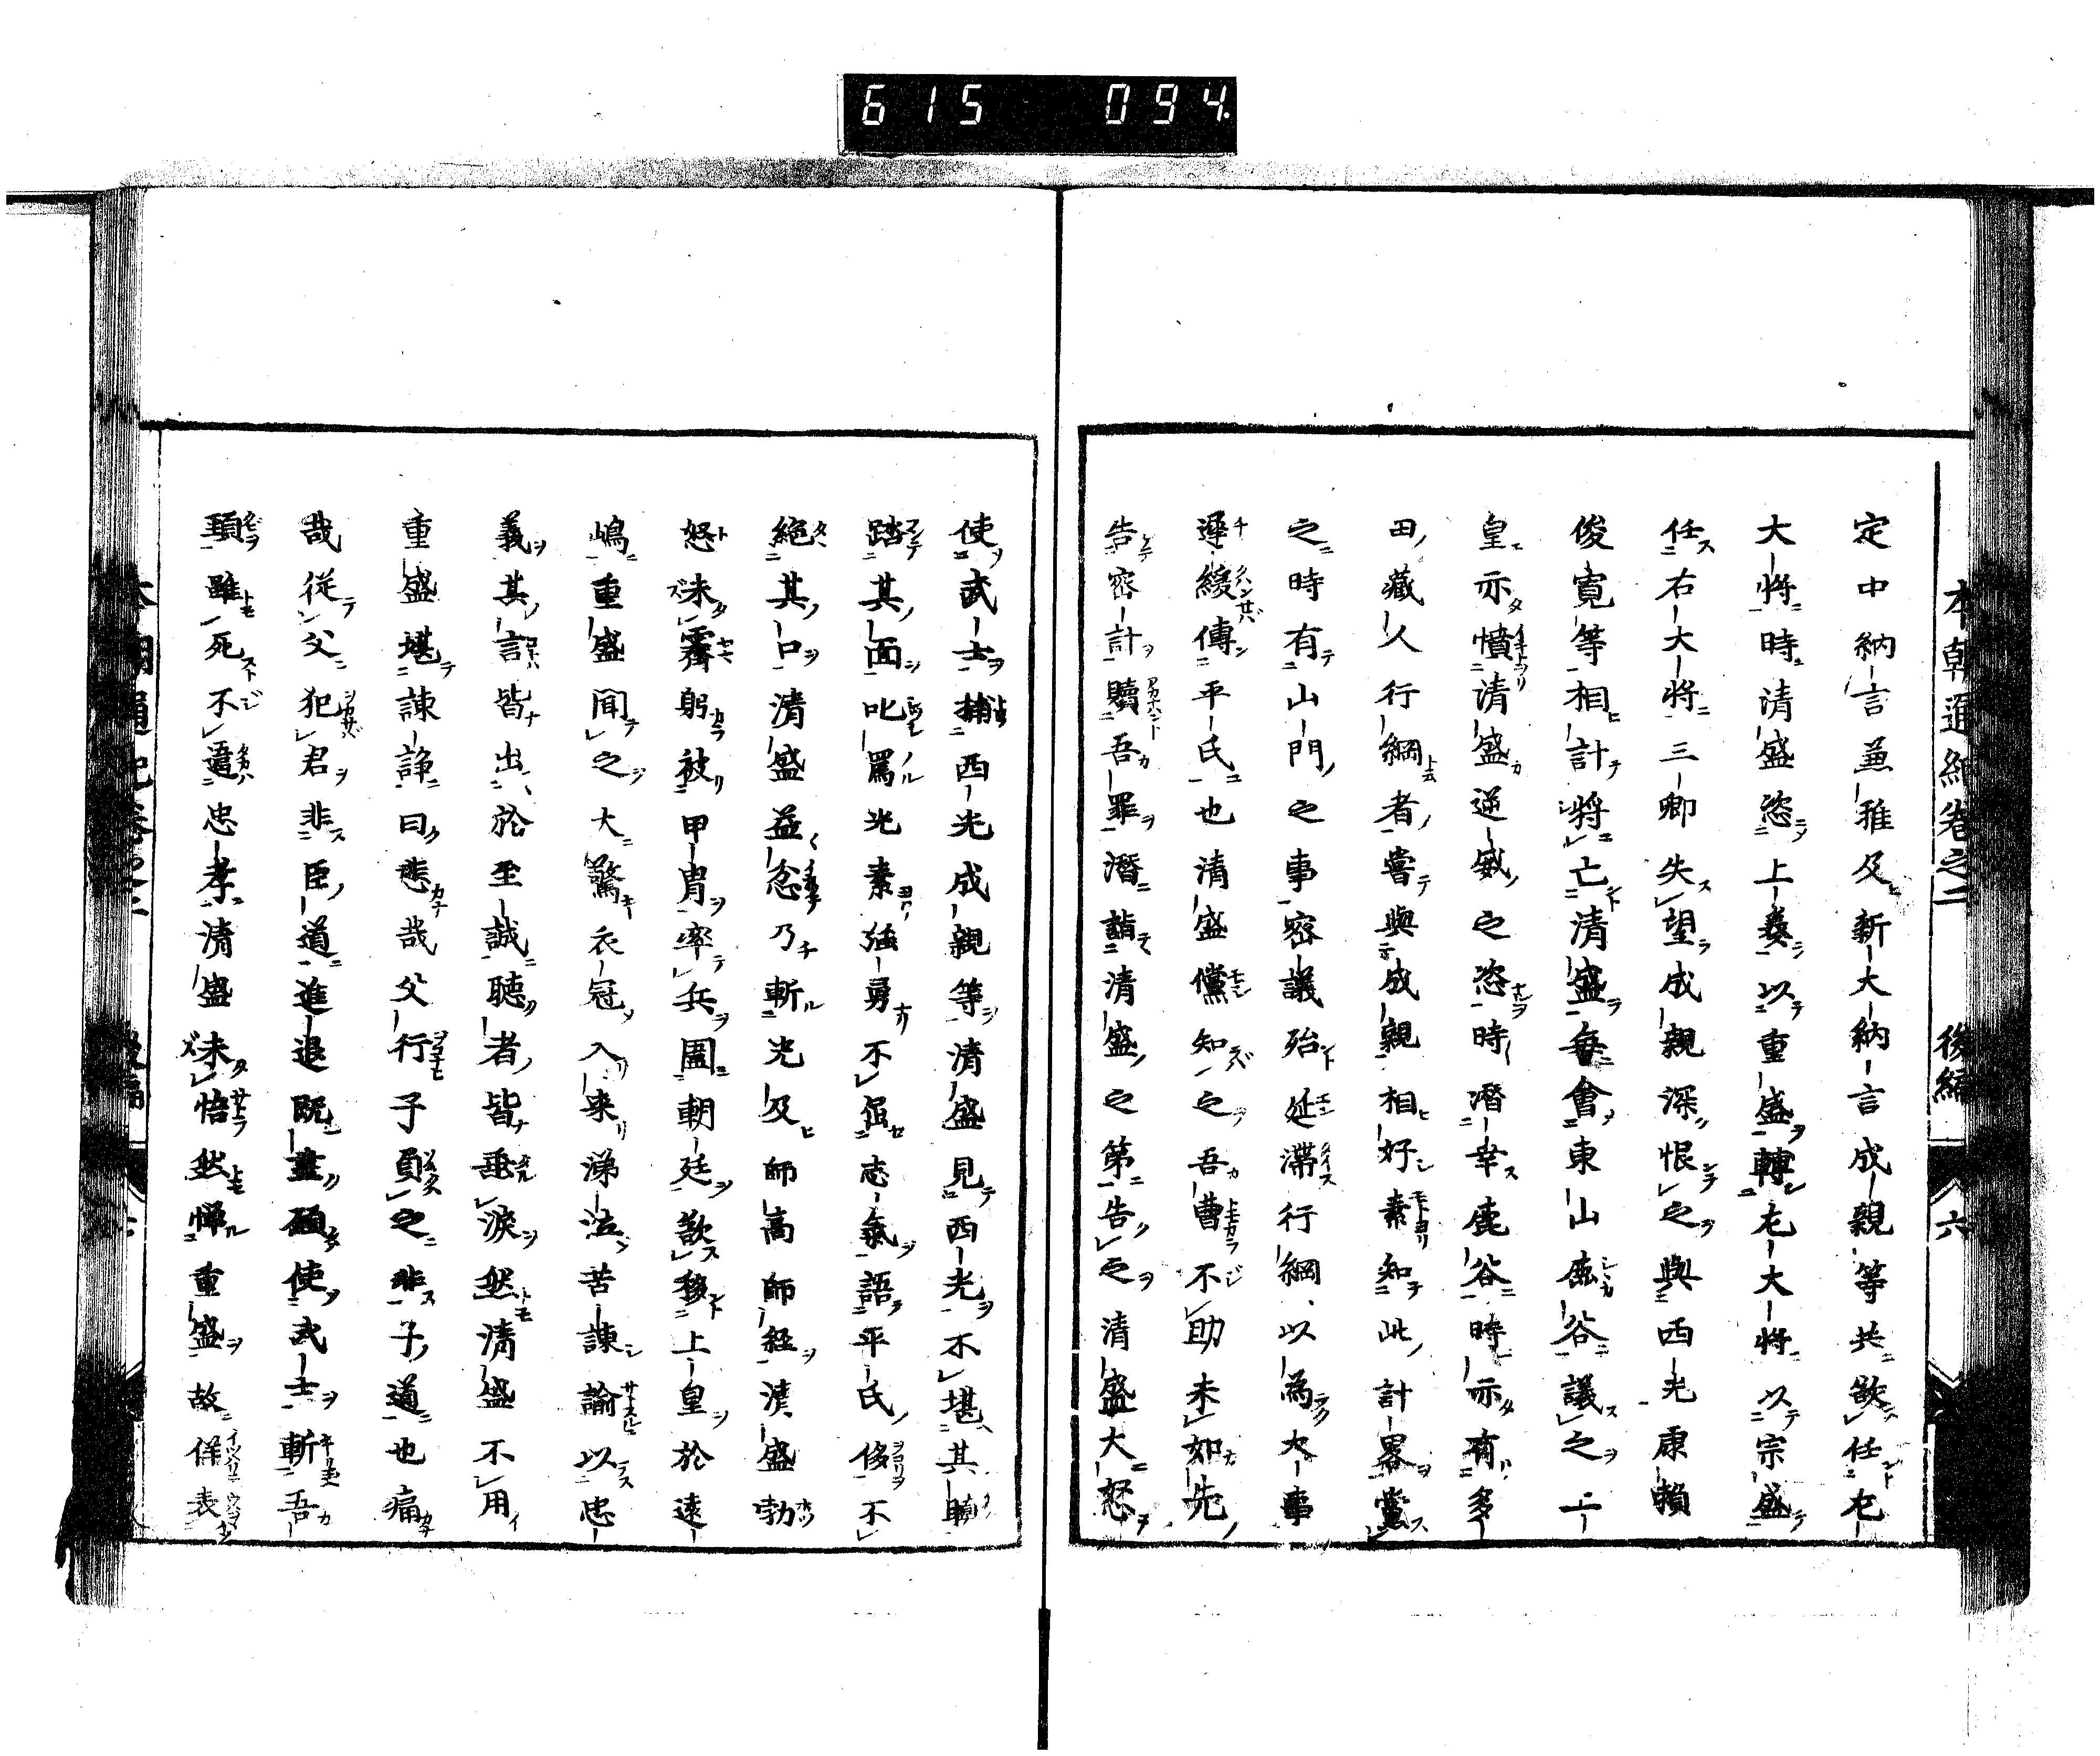 615 094.
本朝通紀卷之二 後編 六
定中納言兼雅及新大納言成親等共欲任左
大將時清盛恣上表以重盛轉左大將以宗盛
任右大將三卿失望成親深恨之與西光康頼
俊寛等相計將亡清盛毎會東山鹿谷議之上
皇亦憤清盛逆威之恣時潜幸鹿谷時亦有多
田藏人行綱者嘗與成親相好素知此計畧黨
之時有山門之事密議殆延滯行綱以為大事
遲緩傳平氏也清盛儻知之吾曹不助未如先
告密計贖吾罪潜詣清盛之第告之清盛大怒
使武士捕西光成親等清盛見西光不堪其
踏其面叱罵光素強勇不屈志氣語平氏侈不
絶其口清盛益忿乃斬光及師高師経清盛勃
怒未霽躬被甲冑率兵圍朝廷欲移上皇於遠
嶋重盛聞之大驚衣冠入来涕泣苦諫諭以忠
義其言皆出於至誠聴者皆垂涙然清盛不用
重盛堪諫諍曰悲哉父行子負之非子道也痛
哉従父犯君非臣道進退既盡願使武士斬吾
頸雖死不違忠孝清盛未悟然憚重盛故佯表